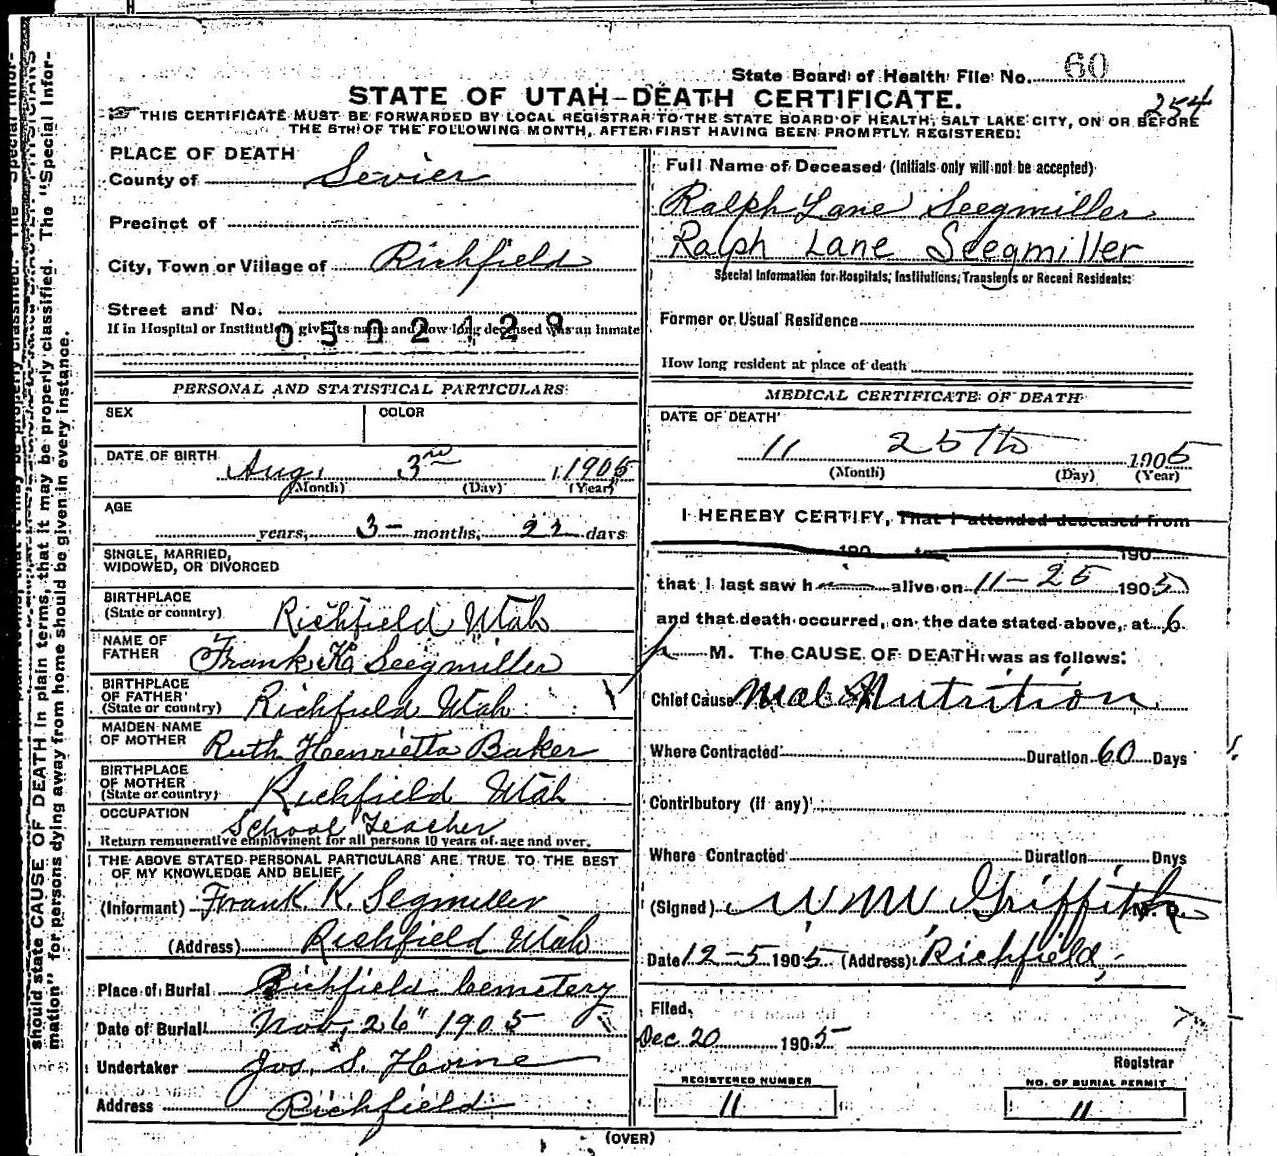 State Board of Health File No. 60
254
STATE OF UTAH—DEATH CERTIFICATE.
THIS CERTIFICATE MUST BE FORWARDED BY LOCAL REGISTRAR TO THE STATE BOARD OF HEALTH, SALT LAKE CITY, ON OR BEFORE
THE 5TH OF THE FOLLOWING MONTH, AFTER FIRST HAVING BEEN PROMPTLY REGISTERED.
PLACE OF DEATH
County of Sevier
Precinct of
City, Town or Village of Richfield
Street and No.
If in Hospital or Institution, give its name and how long deceased was an inmate
0502429
PERSONAL AND STATISTICAL PARTICULARS
SEX COLOR
DATE OF BIRTH Aug. 3rd 1905
(Month) (Day) (Year)
AGE
years, 3 — months, 22 days
SINGLE, MARRIED,
WIDOWED, OR DIVORCED
BIRTHPLACE
(State or country) Richfield Utah
NAME OF
FATHER Frank K. Seegmiller
BIRTHPLACE
OF FATHER
(State or country) Richfield Utah
MAIDEN NAME
OF MOTHER Ruth Henrietta Baker
BIRTHPLACE
OF MOTHER
(State or country) Richfield Utah
OCCUPATION School Teacher
Return remunerative employment for all persons 10 years of age and over.
THE ABOVE STATED PERSONAL PARTICULARS ARE TRUE TO THE BEST
OF MY KNOWLEDGE AND BELIEF
(Informant) Frank K. Segmiller
(Address) Richfield Utah
Place of Burial Richfield Cemetery
Date of Burial Nov. 26" 1905
Undertaker Jos. S. Horne
Address Richfield
Full Name of Deceased (Initials only will not be accepted)
Ralph Lane Seegmiller
Ralph Lane Seegmiller
Special Information for Hospitals, Institutions, Transients or Recent Residents:
Former or Usual Residence
How long resident at place of death
MEDICAL CERTIFICATE OF DEATH
DATE OF DEATH
11 25th 1905
(Month) (Day) (Year)
I HEREBY CERTIFY, That I attended deceased from
190 to 190
that I last saw h alive on 11-25 1905
and that death occurred, on the date stated above, at 6
p M. The CAUSE OF DEATH was as follows:
Chief Cause Mal Nutrition
Where Contracted Duration 60 Days
Contributory (if any)
Where Contracted Duration Days
(Signed) W M W Griffith M.D.
Date 12-5 1905 (Address) Richfield,
Filed,
Dec 20 1905
Registrar
REGISTERED NUMBER
11
NO. OF BURIAL PERMIT
11
(OVER)
should state CAUSE OF DEATH in plain terms, that it may be properly classified. The "Special Infor-
mation" for persons dying away from home should be given in every instance.